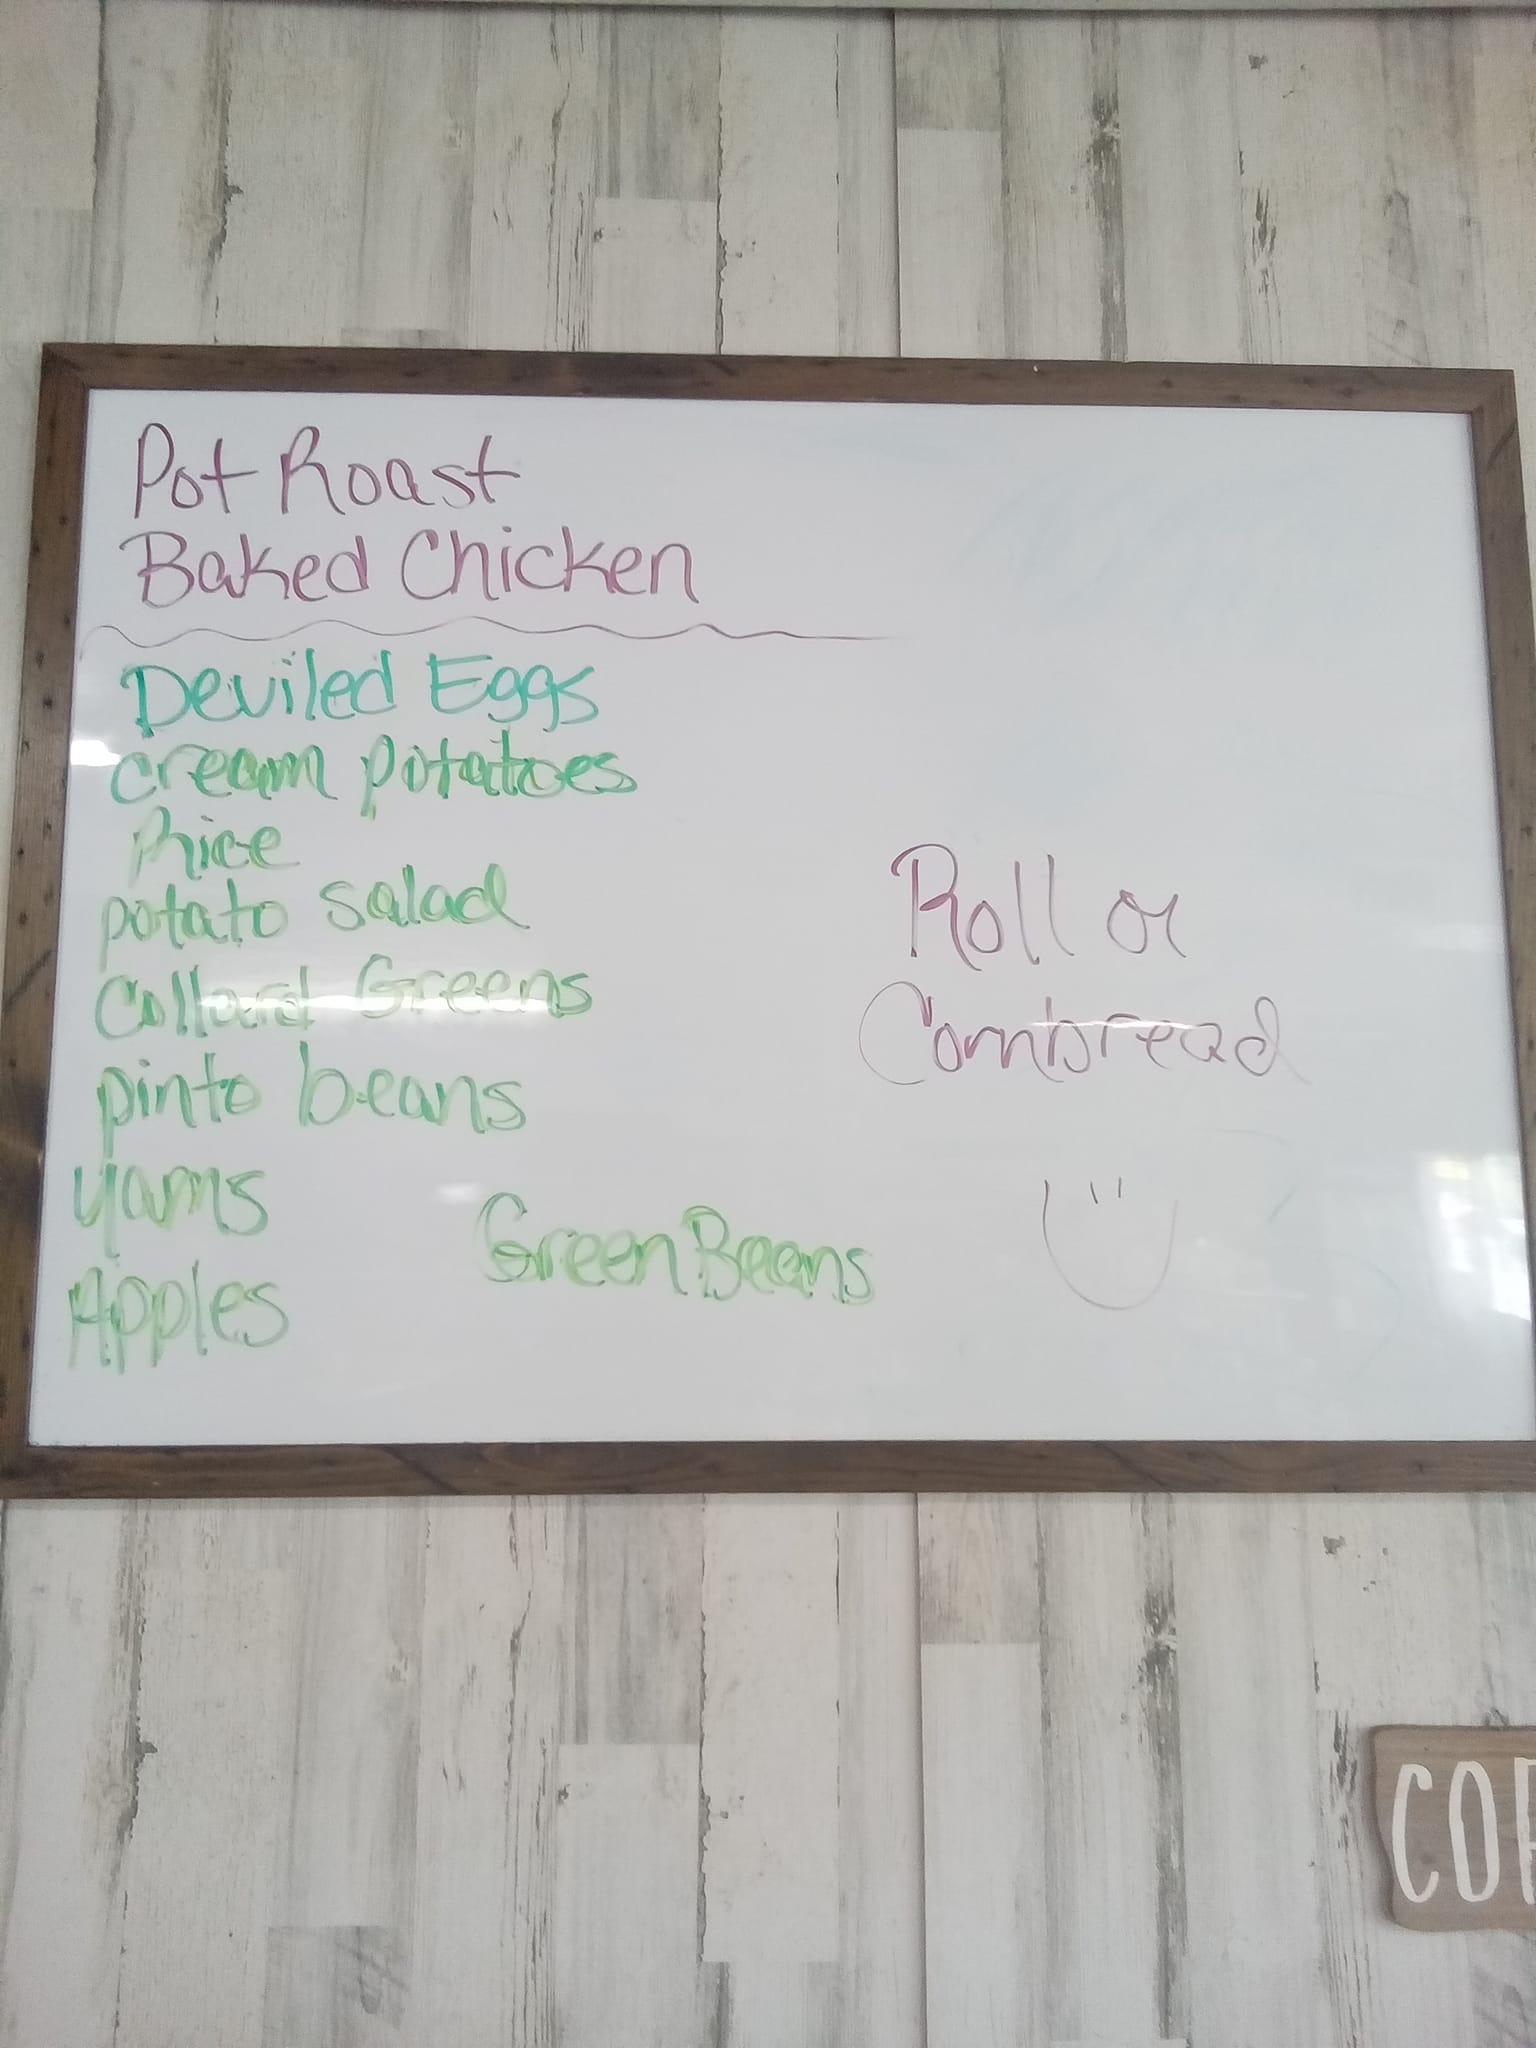 Pot Roast
Baked Chicken
Deviled Eggs
cream potatoes
Rice
potato salad
Collard Greens
pinto beans
yams
Apples
Green Beans
Roll or
Cornbread
COF